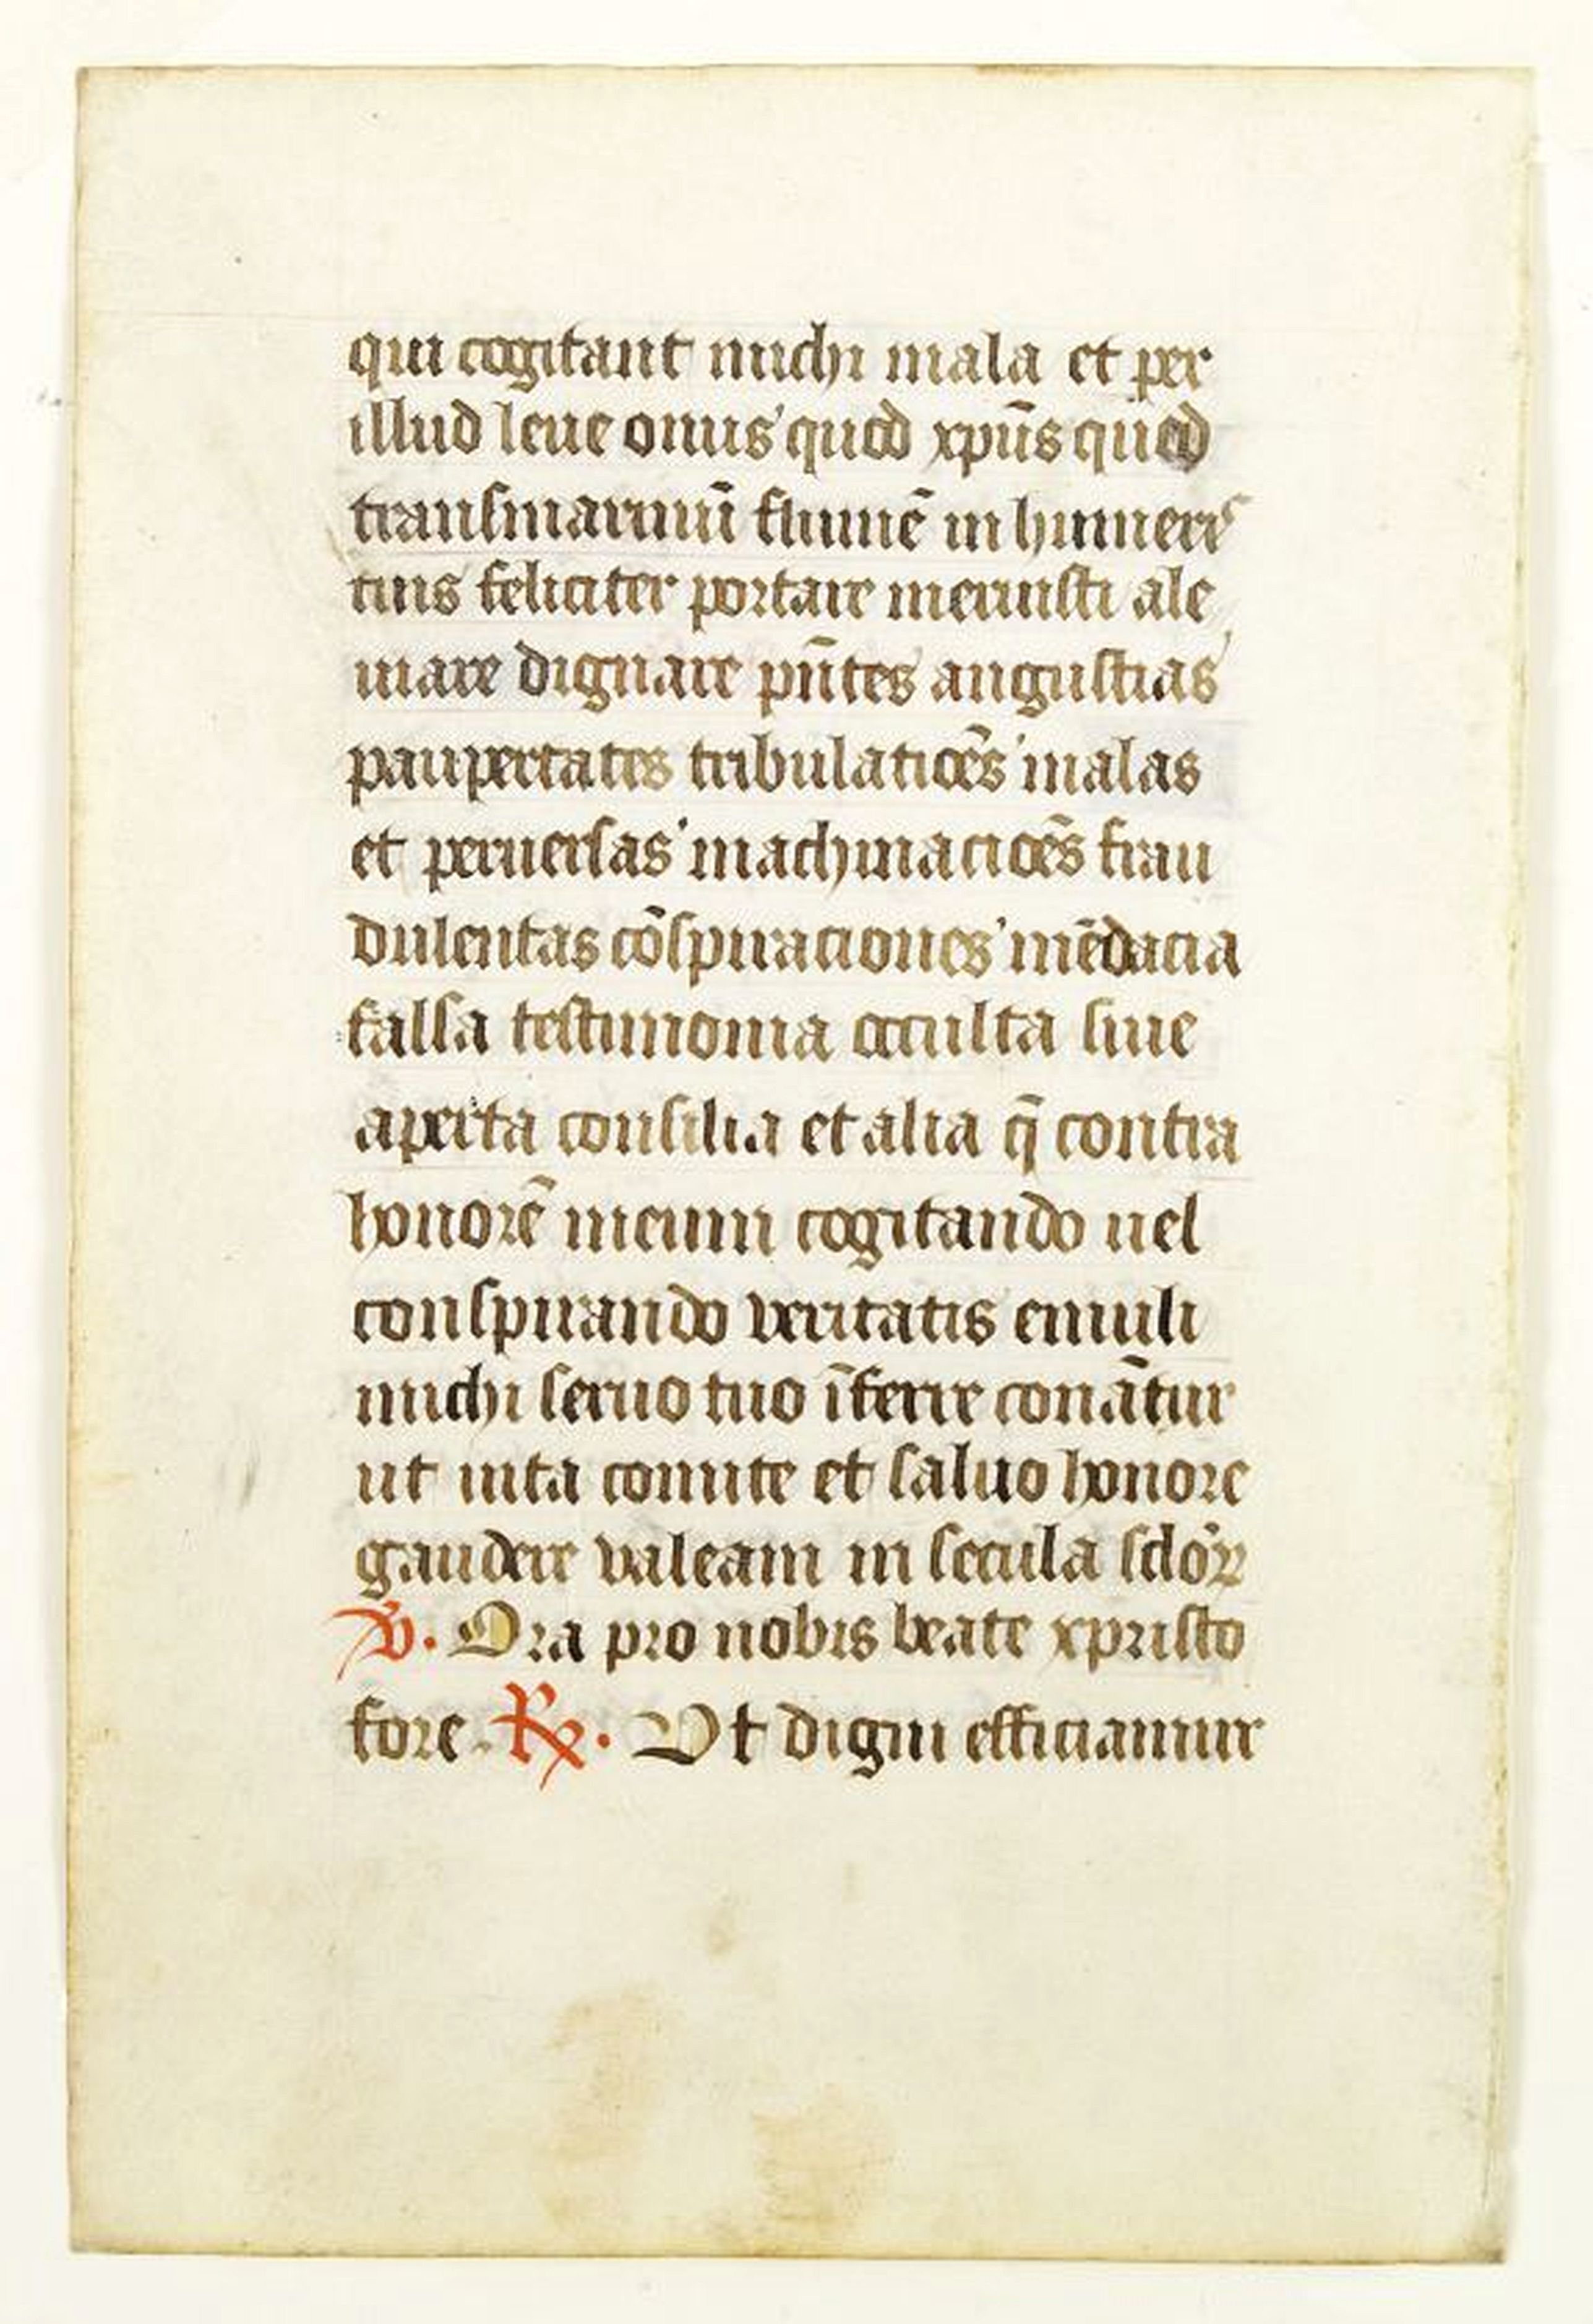 qui cogitant michi mala et per
illud leue onus quod xpūs qued
transmarinū flumē in humeris
tuis feliciter portare meruisti ale
uiare dignare pn̄tes angustias
paupertates tribulatiōēs malas
et peruersas machinaciōēs frau
dulentas cōspiraciones mēdacia
falsa testimonia occulta siue
aperta consilia et alia q̄ contra
honorē meum cogitando uel
conspirando veritatis emuli
michi seruo tuo īferre conātur
ut uita comite et saluo honore
gaudere valeam in secula sclōꝝ
℣. Ora pro nobis beate xpristo
fore. ℟. Vt digni efficiamur